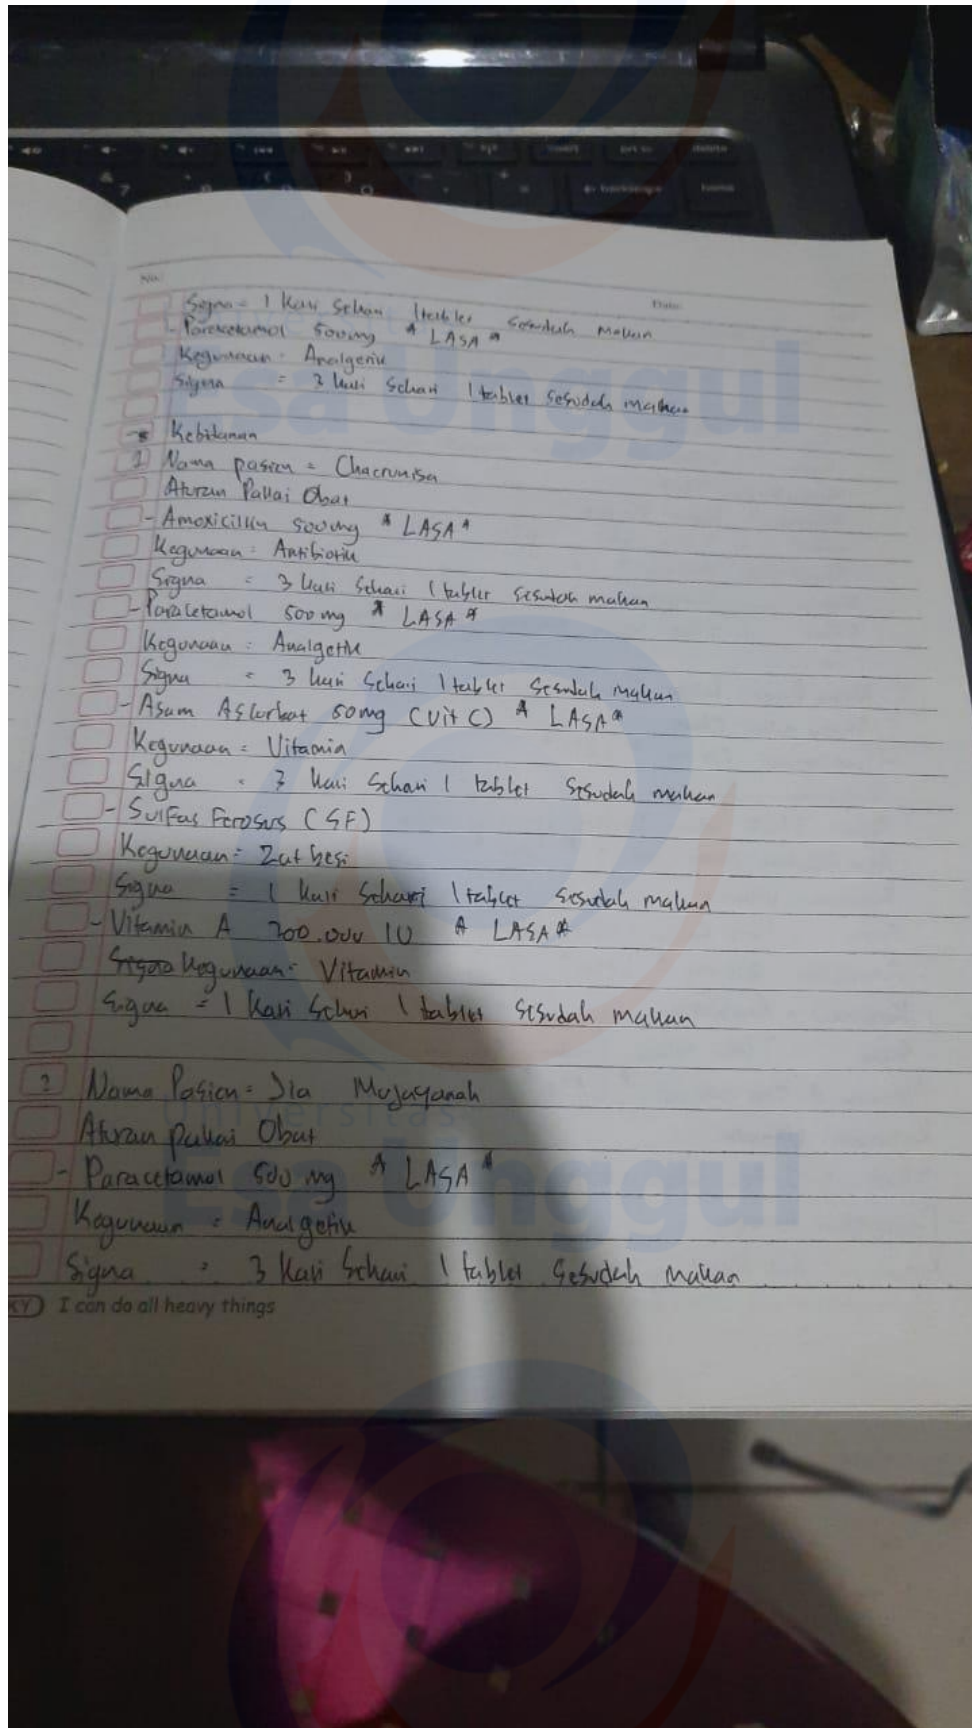 No.
Date:
Signa = 1 Kali Sehari 1 tablet Sesudah Makan
- Paracetamol 500mg * LASA *
Kegunaan = Analgetik
Signa = 3 kali Sehari 1 tablet Sesudah makan
Kebidanan
1 Nama pasien = Chaerunisa
Aturan Pakai Obat
- Amoxicillin 500mg * LASA *
Kegunaan = Antibiotik
Signa = 3 kali Sehari 1 tablet Sesudah makan
- Paracetamol 500 mg * LASA *
Kegunaan = Analgetik
Signa = 3 kari Sehari 1 tablet Sesudah makan
- Asam Askorbat 50mg (Vit C) * LASA *
Kegunaan = Vitamin
Signa = 3 Kali Sehari 1 tablet Sesudah makan
- Sulfas Ferosus (SF)
Kegunaan = Zat besi
Signa = 1 kali Sehari 1 tablet Sesudah makan
- Vitamin A 200.000 IU * LASA *
Kegunaan = Vitamin
Signa = 1 Kali Sehari 1 tablet Sesudah makan
2 Nama Pasien = Iia Mujayanah
Aturan pakai Obat
- Paracetamol 500 mg * LASA *
Kegunaan = Analgetik
Signa = 3 Kali Sehari 1 tablet Sesudah makan
KY I can do all heavy things
Universitas
Esa Unggul
Universitas
Esa Unggul